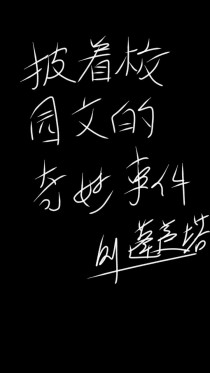 披着校
园文的
奇妙事件
by 蓦芦塔